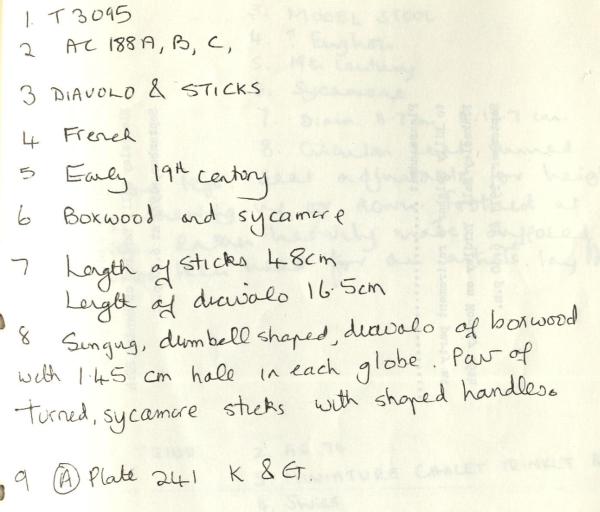 1. T 3095
2 AC 188 A, B, C,
3 DIAVOLO & STICKS
4 French
5 Early 19th century
6 Boxwood and sycamore
7 Length of sticks 48cm
Length of diavolo 16.5cm
8 Singing, dumbell shaped, diavolo of boxwood
with 1.45 cm hole in each globe. Pair of
turned, sycamore sticks with shaped handles.
9 (A) Plate 241 K & G.